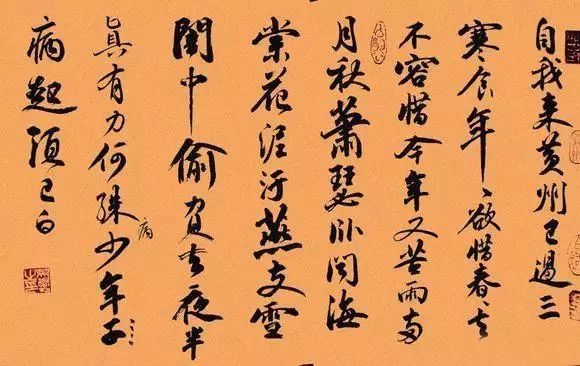 自我来黃州已過三
寒食年々欲惜春々去
不容惜今年又苦雨兩
月秋蕭瑟卧聞海
棠花泥汙燕支雪
闇中偷負去夜半
真有力何殊病少年子
病起頭已白